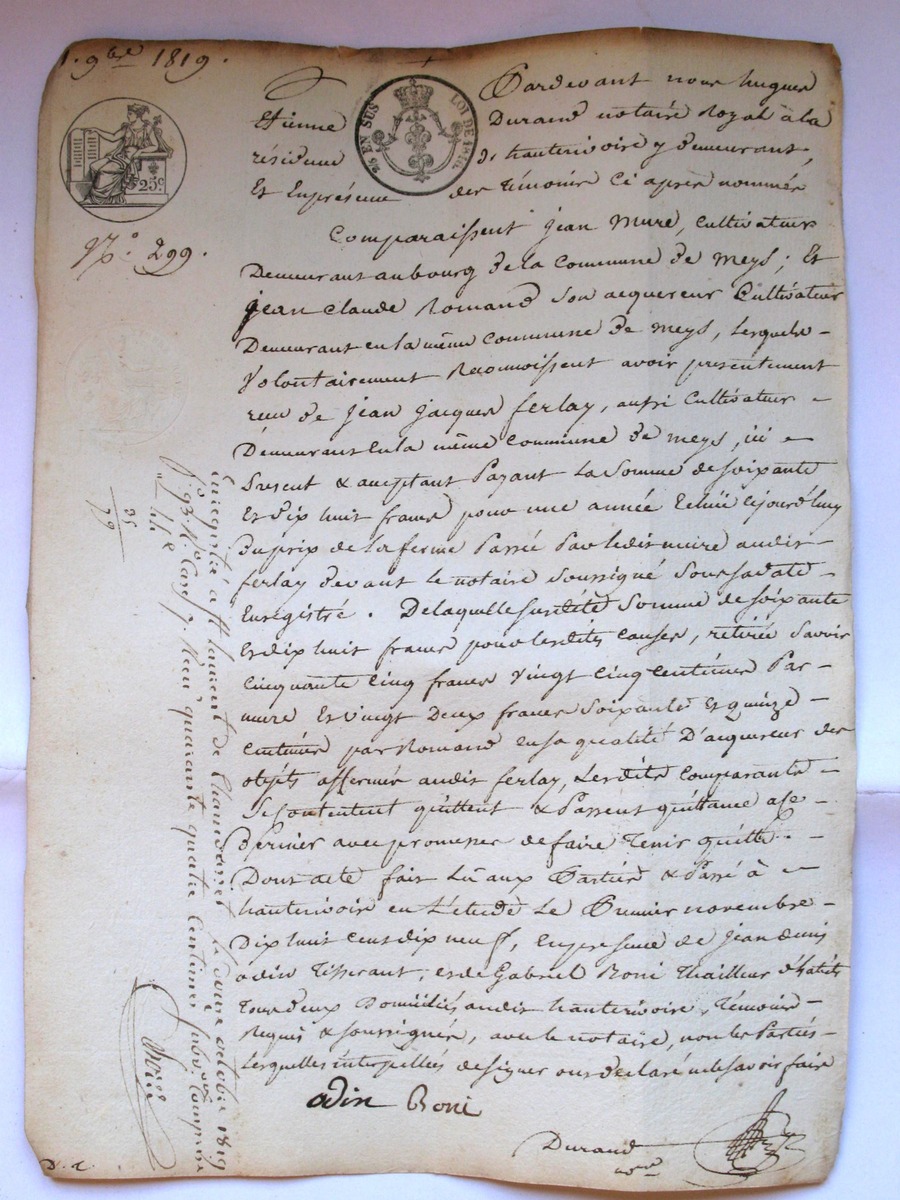 1. 9bre 1819.
25c
EN SUS LOI DE
N.o 299.
Pardevant nous hugues
Etienne Durand notaire Royal à la
résidence de hauterivoire y demeurant,
Et Enprésence des témoins Ci après nommés
Comparaissent jean Mure, Cultivateur
Demeurant aubourg de la Commune de Meys; Et
jean Claude Romand son acquereur Cultivateur
Demeurant en la même Commune de Meys, Lesquels
Volontairement Reconnoissent avoir presentement
reçu de jean jacques ferlay, aussi Cultivateur
Demeurant En la même Commune de Meys, ici
Present & acceptant Payant La Somme de soixante
Et Dix huit francs pour une année Echüe cejourd'huy
Duprix de la ferme Passée Par ledit mure audit
ferlay devant le notaire Soussigné Sous sa date
Enregistré. De laquelle susdite Somme de soixante
Et dix huit francs pour lesdites Causes, retirée Savoir
Cinquante Cinq francs Vingt Cinq Centimes Par
mure Et vingt Deux francs Soixante Et quinze
Centimes par Romand en sa qualité D'acquereur des
objets affermés audit ferlay, Lesdits Comparants
Se Contentent quittent & Passent quittance a ce
Dernier avec promesse de faire Tenir quitte
Dont acte fait Lû aux Parties & Passé à
hauterivoire en L'etude Le Premier novembre
Dix huit Cent dix neuf, En presence de Jean denis
odin Tisserant, et de Gabriel Boni Thailleur d'habits
Tous deux Domiciliés audit hauterivoire, Témoins
Requis & soussignés, avec le notaire, non les Parties
Lesquelles interpellées de signer ont declaré ne le savoir faire
odin Boni
Durand
nore
35
79
Enregistré à St Laurent de Chamousset le douze 1819
f.o 93 R.o Case 7. Reçu quarante quatre Centimes subv.on Comprise